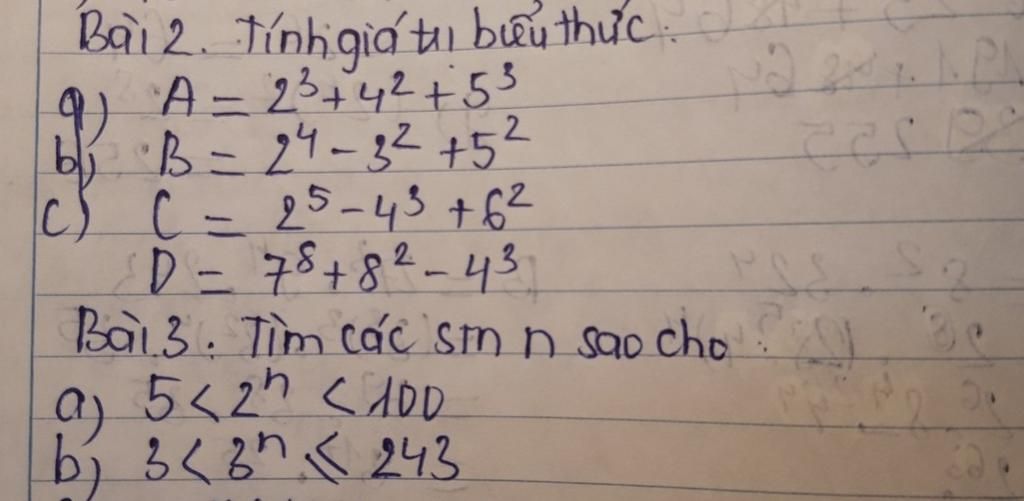 Bài 2. Tính giá trị biểu thức:
a) A = 2³ + 4² + 5³
b) B = 2⁴ - 3² + 5²
c) C = 2⁵ - 4³ + 6²
D = 7⁸ + 8² - 4³
Bài 3. Tìm các stn n sao cho:
a) 5 < 2ⁿ < 100
b) 3 < 3ⁿ ⩽ 243